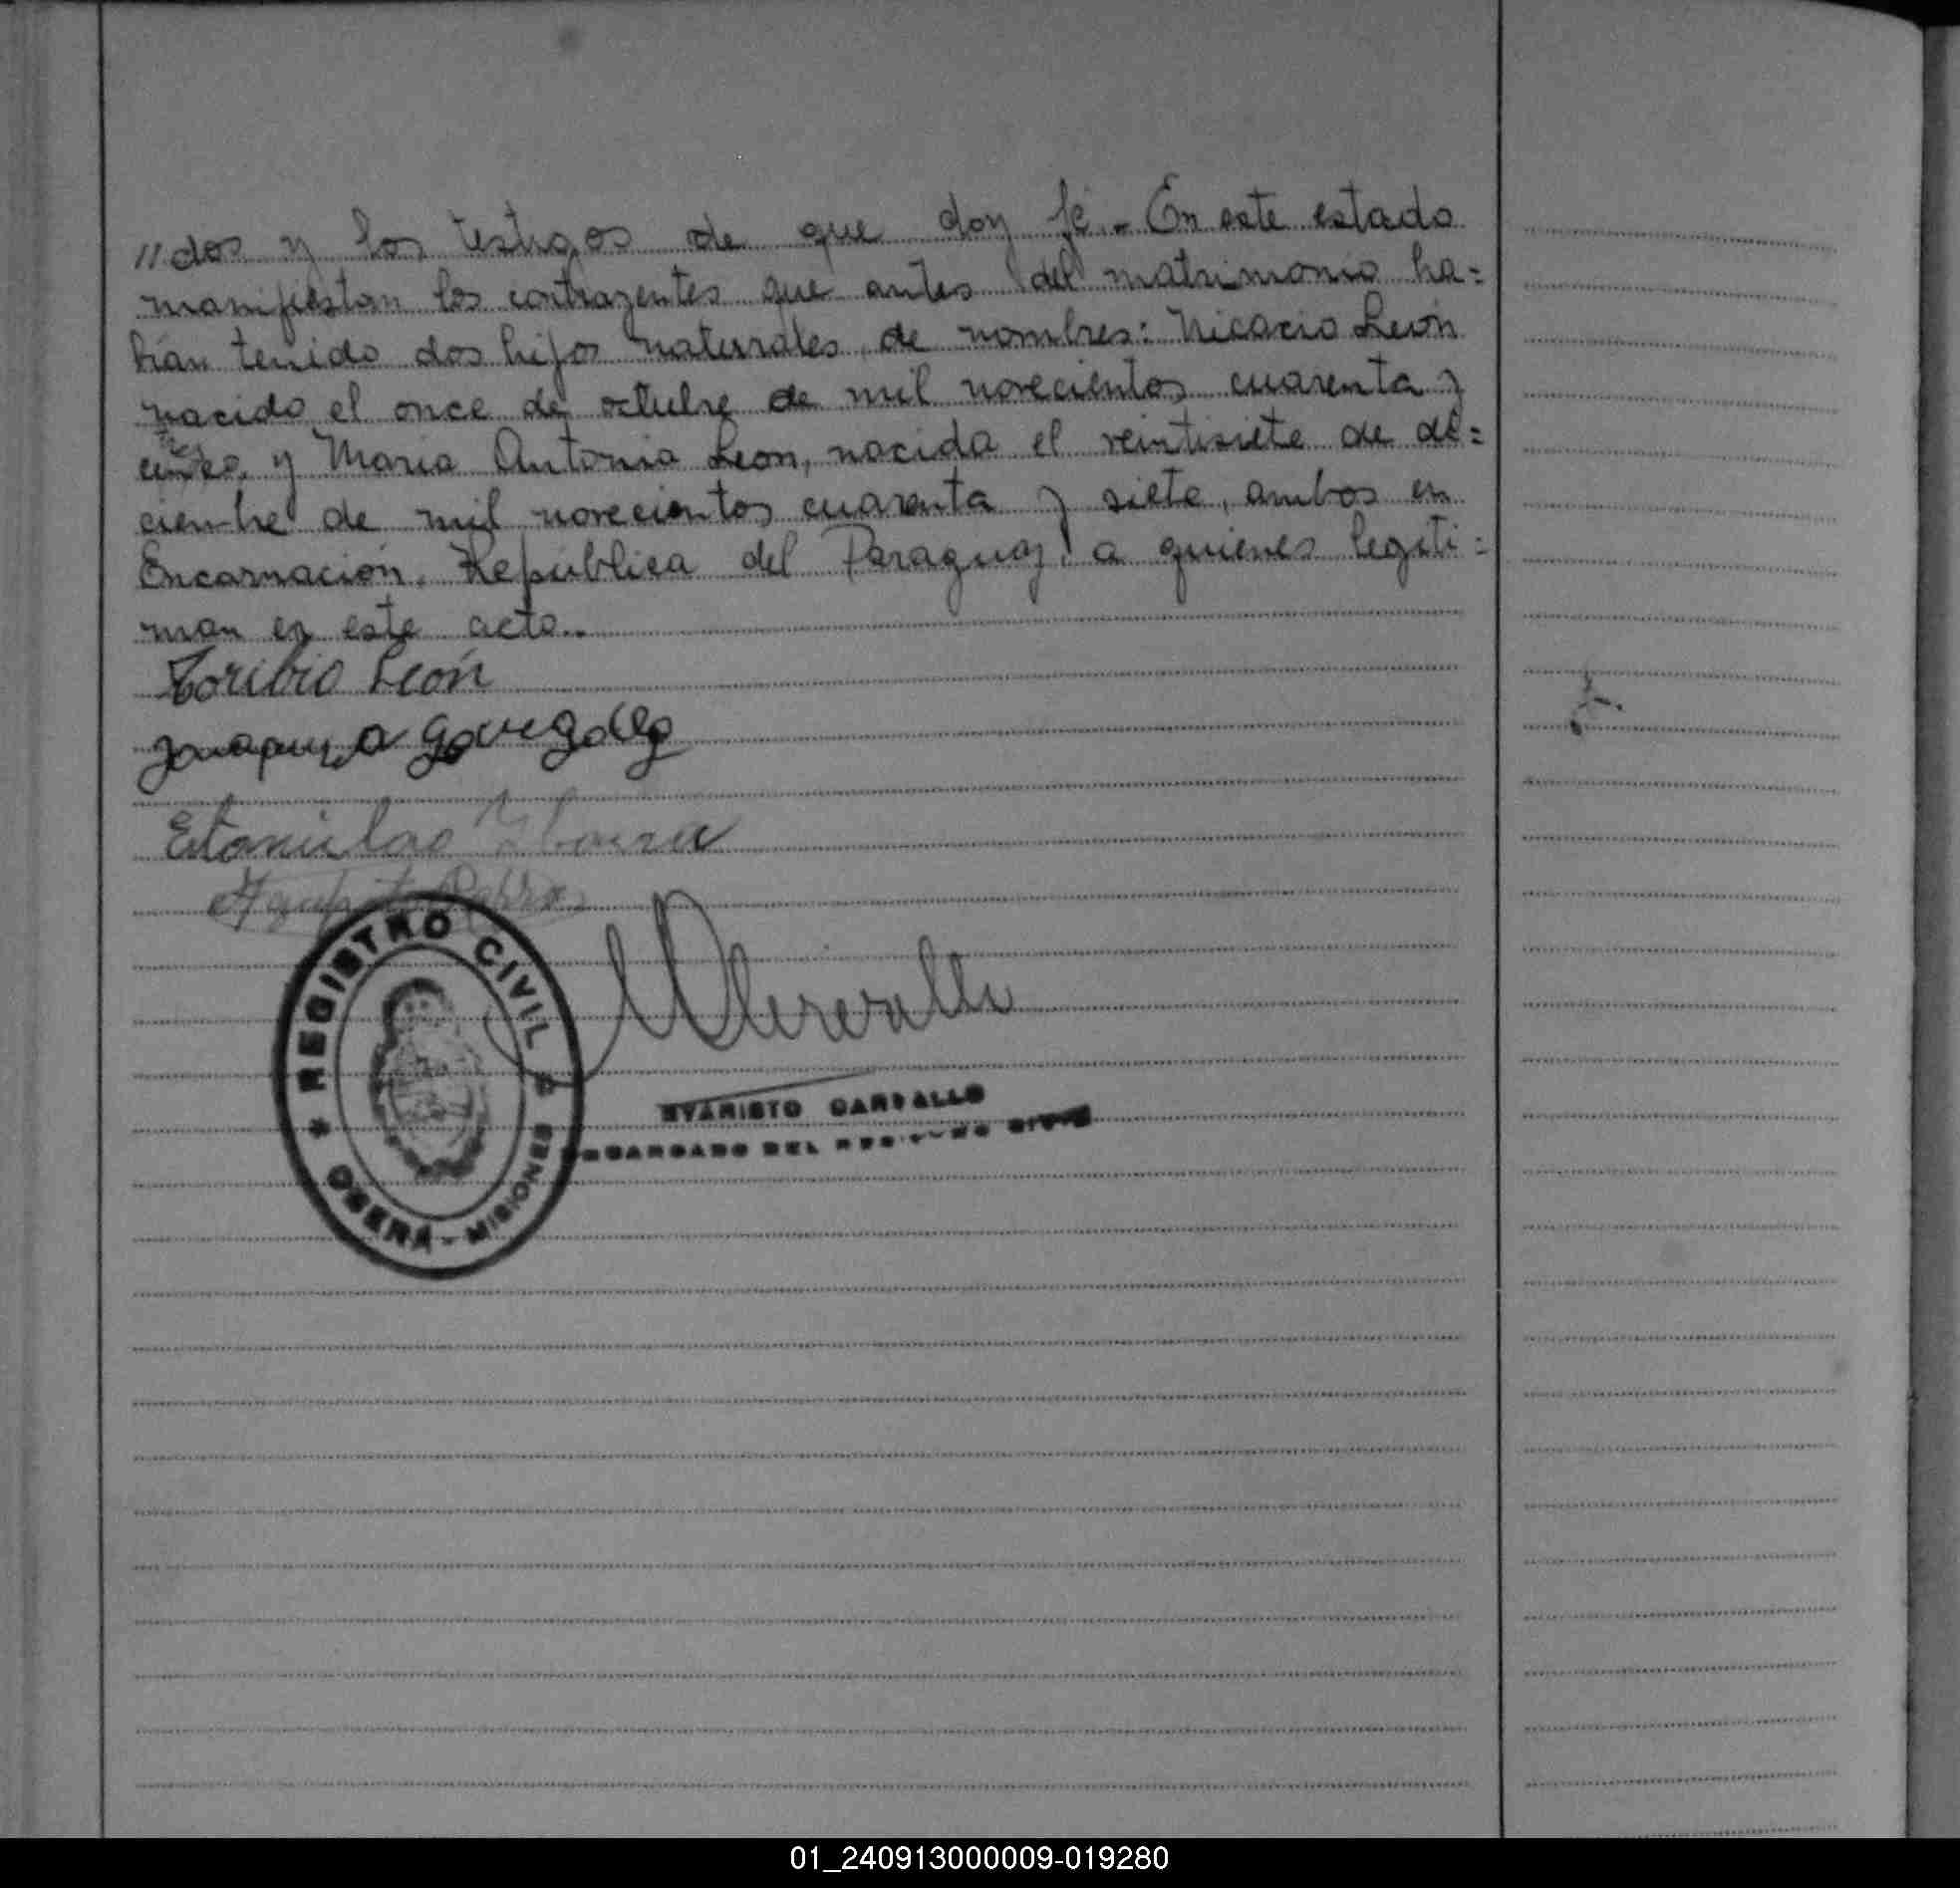 "dos y los testigos de que doy fé.- En este estado
manifiestan los contrayentes que antes del matrimonio ha=
bían tenido dos hijos naturales, de nombres: Nicacio León
nacido el once de octubre de mil novecientos cuarenta y
tres
y María Antonia León, nacida el veintisiete de di=
ciembre de mil novecientos cuarenta y siete, ambos en
Encarnación, República del Paraguay, a quienes legiti=
man en este acto.-
Toribio León
Joaquina Gonzalez
Estanislao
REGISTRO CIVIL
OBERÁ - MISIONES
EVARISTO CARVALLO
ENCARGADO DEL REGISTRO CIVIL
01_240913000009-019280